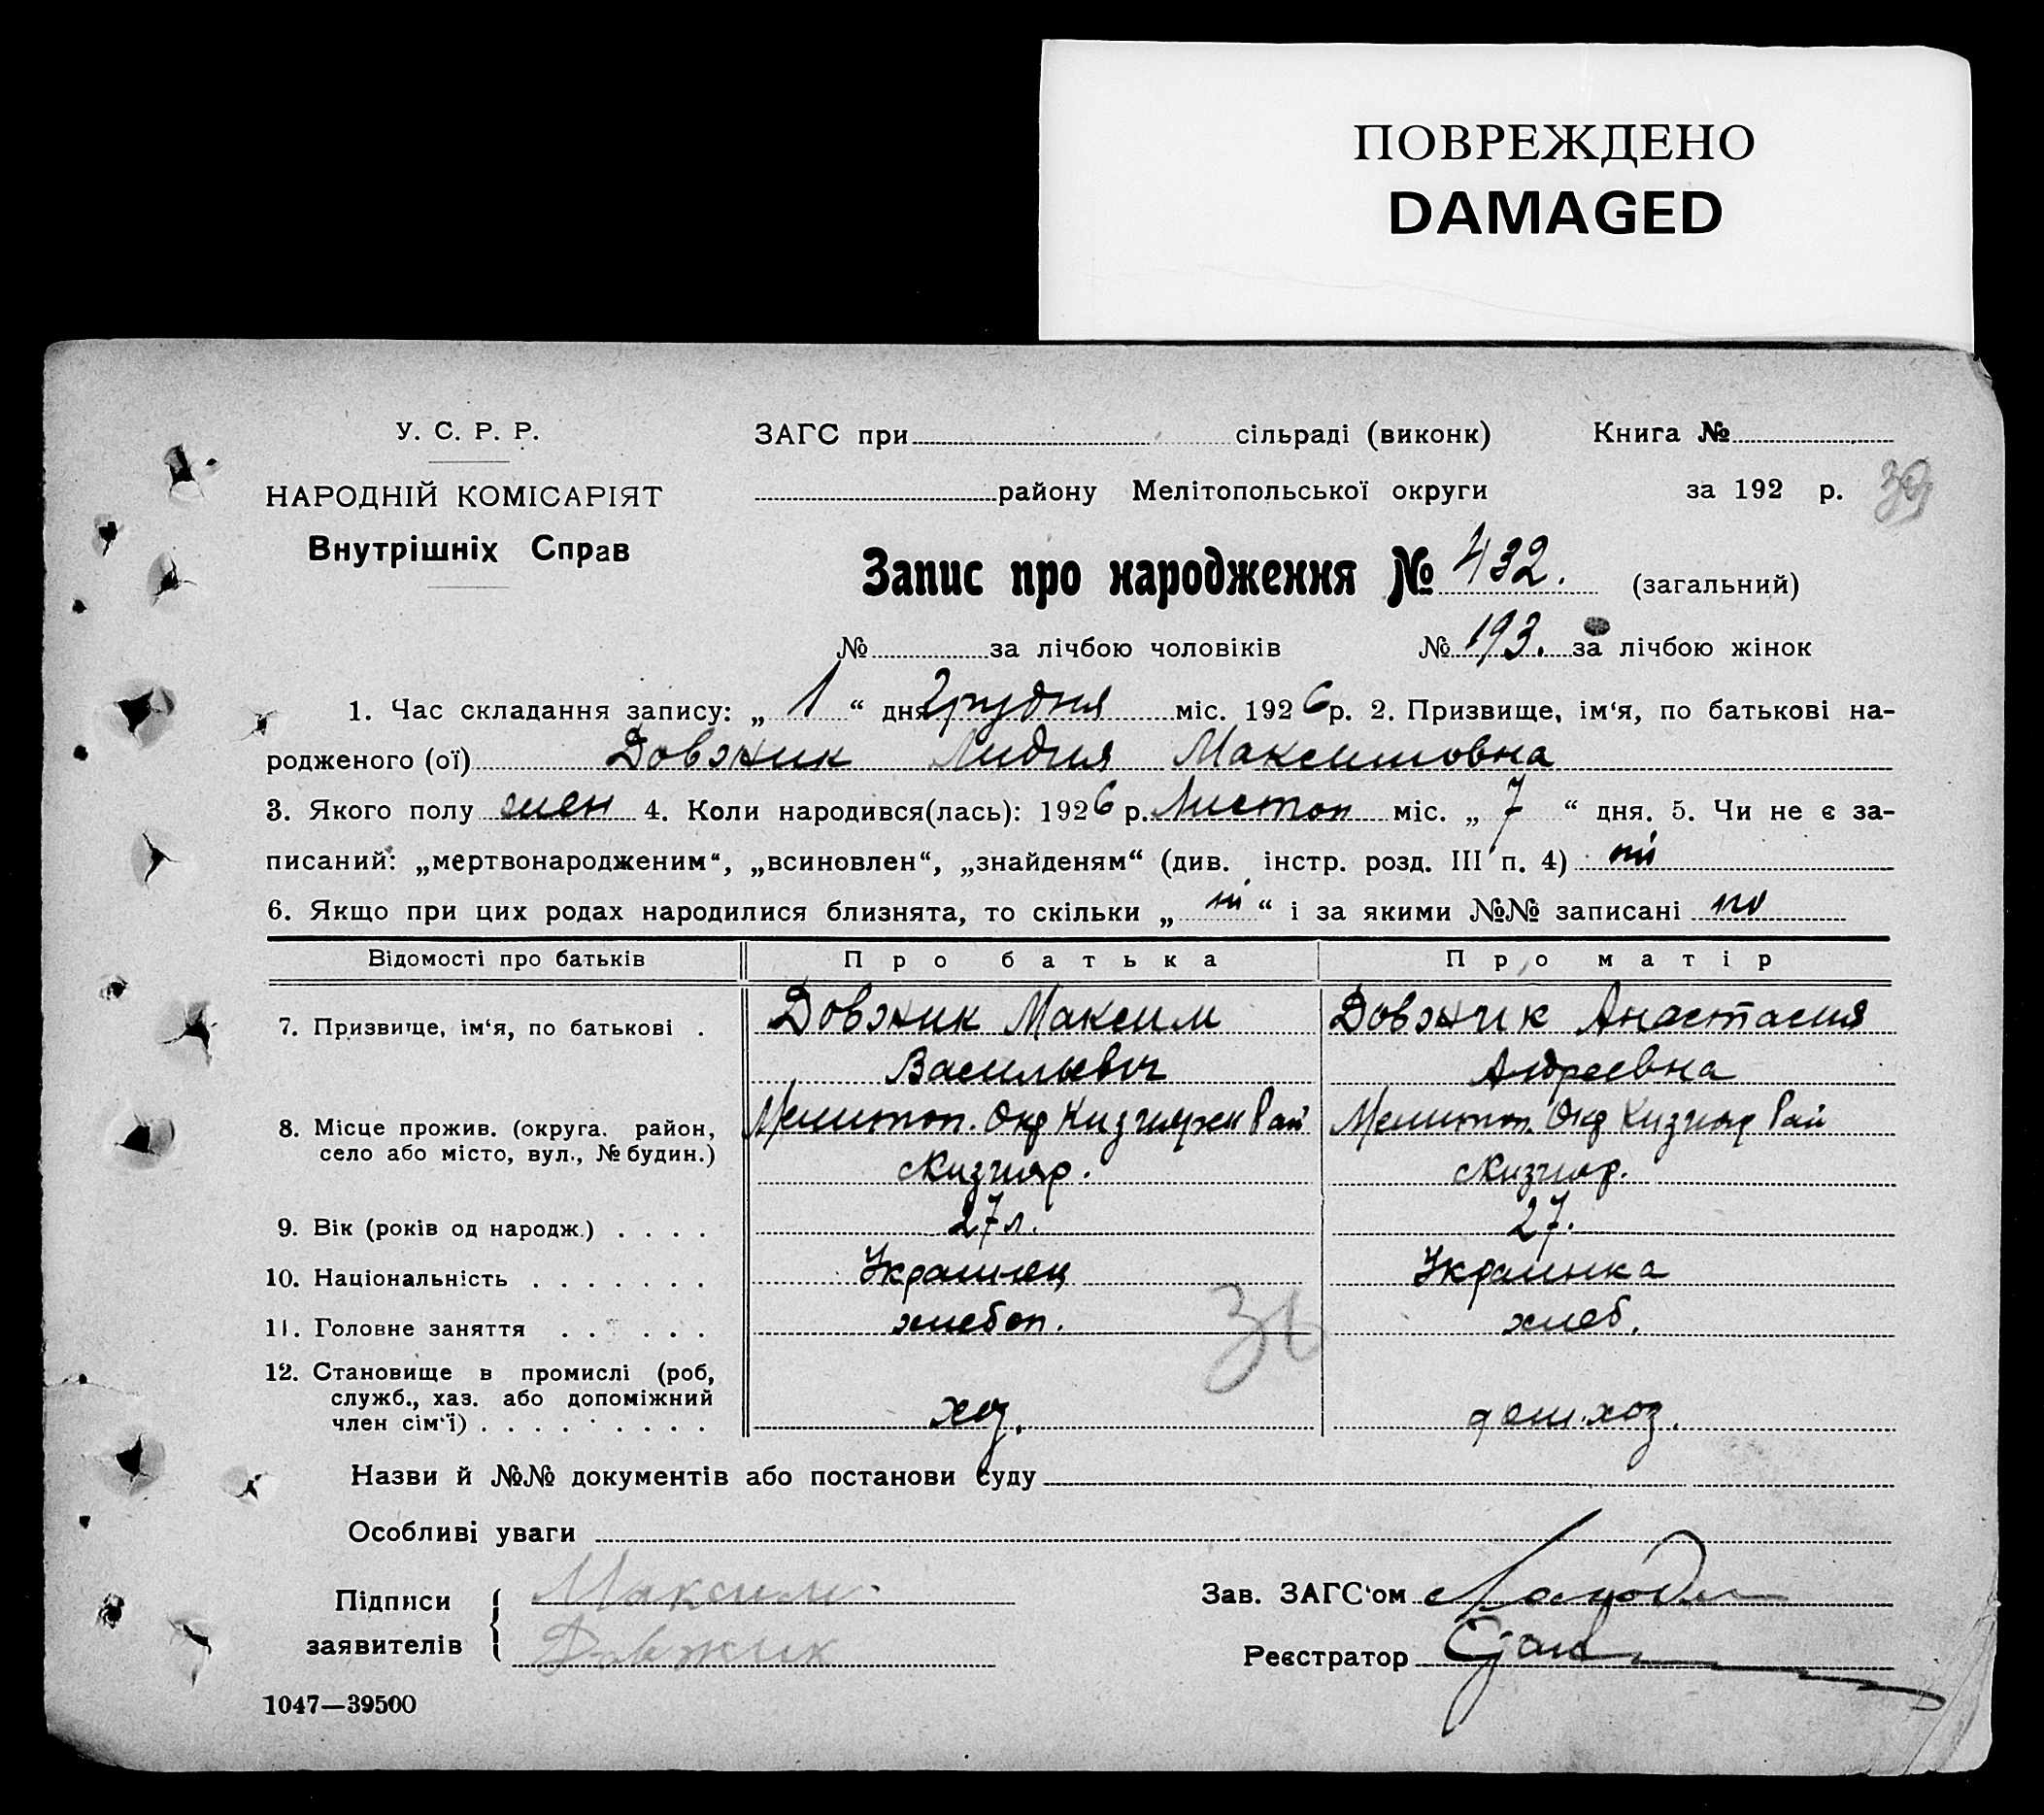 ПОВРЕЖДЕНО
DAMAGED
У. С. Р. Р.
НАРОДНІЙ КОМІСАРІЯТ
Внутрішніх Справ
ЗАГС при сільраді (виконк) Книга №
району Мелітопольської округи за 192 р. 39
Запис про народження № 432. (загальний)
№ за лічбою чоловіків № 193. за лічбою жінок
1. Час складання запису: „ 1 “ дня Грудня міс. 1926 р. 2. Призвище, ім‘я, по батькові на-
родженого (ої) Довжик Лидия Максимовна
3. Якого полу жен 4. Коли народився(лась): 1926 р. Листоп міс. „ 7 “ дня. 5. Чи не є за-
писаний: „мертвонародженим“, „всиновлен“, „знайденям“ (див. інстр. розд. III п. 4) ні
6. Якщо при цих родах народилися близнята, то скільки „ ні “ і за якими №№ записані
Відомості про батьків Про батька Про матір
7. Призвище, ім‘я, по батькові . Довжик Максим Довжик Анастасия
Васильевич Андреевна
8. Місце прожив. (округа. район, Мелитоп. Окр Кизиярск Рай Мелитоп. Окр Кизияр Рай
село або місто, вул., № будин.) с Кизияр. с Кизияр.
9. Вік (років од народж.) . . . . 27 л. 27.
10. Національність . . . . . . . Украинец Украинка
11. Головне заняття . . . . . . хлебоп. хлеб.
36
12. Становище в промислі (роб,
служб., хаз. або допоміжний
член сім‘ї) . . . . . . . . хоз. дом.хоз.
Назви й №№ документів або постанови суду
Особливі уваги
Підписи Максим Зав. ЗАГС‘ом
заявителів Довжик Реєстратор
1047—39500